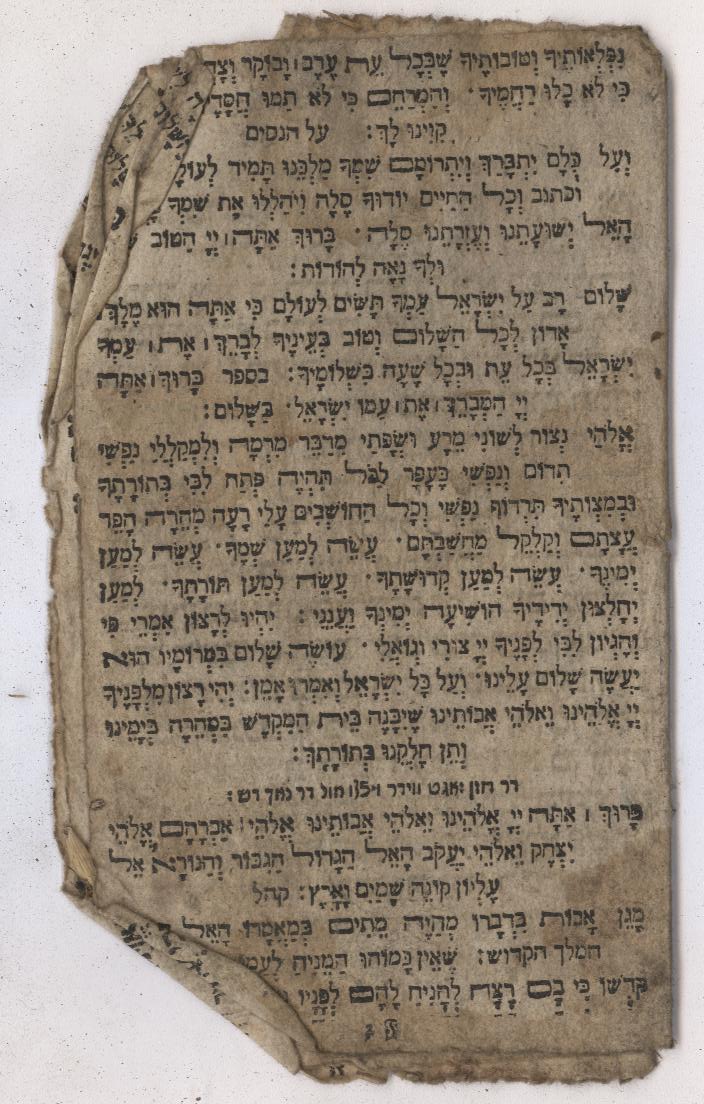 נִפְלְאוֹתֶיךָ וְטוֹבוֹתֶיךָ שֶׁבְּכָל עֵת עֶרֶב וָבוֹקֶר
כִּי לֹא כָלוּ רַחֲמֶיךָ · וְהַמְרַחֵם כִּי לֹא תַמּוּ
קִוִּינוּ לָךְ: על הנסים
וְעַל כֻּלָּם יִתְבָּרַךְ וְיִתְרוֹמַם שִׁמְךָ מַלְכֵּנוּ תָּמִיד
וכתוב וְכָל הַחַיִּים יוֹדוּךָ סֶּלָה וִיהַלְלוּ אֶת שִׁמְךָ
הָאֵל יְשׁוּעָתֵנוּ וְעֶזְרָתֵנוּ סֶלָה · בָּרוּךְ אַתָּה יְיָ הַטּוֹב
וּלְךָ נָאֶה לְהוֹדוֹת:
שָׁלוֹם רָב עַל יִשְׂרָאֵל עַמְּךָ תָּשִׂים לְעוֹלָם כִּי אַתָּה הוּא מֶלֶךְ
אָדוֹן לְכָל הַשָּׁלוֹם וְטוֹב בְּעֵינֶיךָ לְבָרֵךְ אֶת עַמְּךָ
יִשְׂרָאֵל בְּכָל עֵת וּבְכָל שָׁעָה בִּשְׁלוֹמֶךָ: בספר בָּרוּךְ אַתָּה
יְיָ הַמְבָרֵךְ אֶת עַמּוֹ יִשְׂרָאֵל · בַּשָּׁלוֹם:
אֱלֹהַי נְצוֹר לְשׁוֹנִי מֵרָע וּשְׂפָתַי מִדַּבֵּר מִרְמָה וְלִמְקַלְלַי נַפְשִׁי
תִדּוֹם וְנַפְשִׁי כֶּעָפָר לַכֹּל תִּהְיֶה פְּתַח לִבִּי בְּתוֹרָתֶךָ
וּבְמִצְוֹתֶיךָ תִּרְדּוֹף נַפְשִׁי וְכָל הַחוֹשְׁבִים עָלַי רָעָה מְהֵרָה הָפֵר
עֲצָתָם וְקַלְקֵל מַחֲשַׁבְתָּם · עֲשֵׂה לְמַעַן שְׁמֶךָ · עֲשֵׂה לְמַעַן
יְמִינֶךָ · עֲשֵׂה לְמַעַן קְדוּשָׁתֶךָ · עֲשֵׂה לְמַעַן תּוֹרָתֶךָ · לְמַעַן
יֵחָלְצוּן יְדִידֶיךָ הוֹשִׁיעָה יְמִינְךָ וַעֲנֵנִי: יִהְיוּ לְרָצוֹן אִמְרֵי פִי
וְהֶגְיוֹן לִבִּי לְפָנֶיךָ יְיָ צוּרִי וְגוֹאֲלִי · עוֹשֶׂה שָׁלוֹם בִּמְרוֹמָיו הוּא
יַעֲשֶׂה שָׁלוֹם עָלֵינוּ · וְעַל כָּל יִשְׂרָאֵל וְאִמְרוּ אָמֵן: יְהִי רָצוֹן מִלְּפָנֶיךָ
יְיָ אֱלֹהֵינוּ וֵאלֹהֵי אֲבוֹתֵינוּ שֶׁיִּבָּנֶה בֵּית הַמִּקְדָּשׁ בִּמְהֵרָה בְיָמֵינוּ
וְתֵן חֶלְקֵנוּ בְּתוֹרָתֶךָ:
דר חזן זאגט ווידר
בָּרוּךְ אַתָּה יְיָ אֱלֹהֵינוּ וֵאלֹהֵי אֲבוֹתֵינוּ אֱלֹהֵי אַבְרָהָם אֱלֹהֵי
יִצְחָק וֵאלֹהֵי יַעֲקֹב הָאֵל הַגָּדוֹל הַגִּבּוֹר וְהַנּוֹרָא אֵל
עֶלְיוֹן קוֹנֵה שָׁמַיִם וָאָרֶץ: קהל
מָגֵן אָבוֹת בִּדְבָרוֹ מְחַיֵּה מֵתִים בְּמַאֲמָרוֹ הָאֵל
המלך הקדוש: שֶׁאֵין כָּמוֹהוּ הַמֵּנִיחַ לְעַמּוֹ
קָדְשׁוֹ כִּי בָם רָצָה לְהָנִיחַ לָהֶם לְפָנָיו